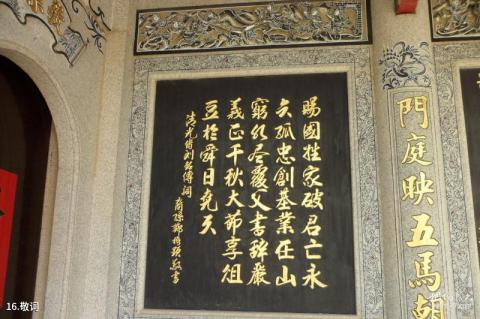 賜國姓家破君亡永
矢孤忠創基業在山
窮水尽覆父書辞嚴
義正千秋大節享俎
豆於舜日堯天
清光绪刘铭傳詞
裔孫鄭敬書
門庭映五馬朝
16.敬词